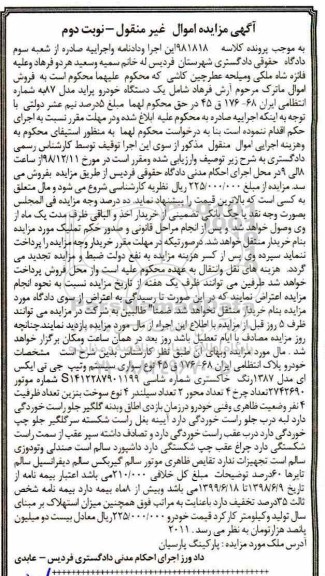 آگهی مزایده اموال غیر منقول – نوبت دوم
به موجب پرونده کلاسه ۹۸۱۸۱۸ این اجرا ودادنامه واجراییه صادره از شعبه سوم
دادگاه حقوقی دادگستری شهرستان فردیس له خانم سمیه وسعید هر دو فرهاد وعلیه
فائزه شاه ملکی ومیلحه عطرچین کاشی که محکوم علیهما محکوم است به فروش
اموال ماترک مرحوم آرش فرهاد شامل یک دستگاه خودرو پراید مدل ۸۷ به شماره
انتظامی ایران ۶۸- ۱۷۶ ق ۴۵ در حق محکوم لهما مبلغ ۵درصد نیم عشر دولتی با
توجه به اینکه اجراییه صادره به محکوم علیه ابلاغ شده ودر مهلت مقرر نسبت به اجرای
حکم اقدام ننموده است بنا به درخواست محکوم لهما به منظور استیفای محکوم به
وهزینه اجرایی اموال منقول مذکور از سوی این اجرا توقیف توسط کارشناس رسمی
دادگستری به شرح زیر توصیف وارزیابی شده ومقرر است در مورخ ۹۸/۱۲/۱۱ از ساعت
۸ الی ۹ در محل اجرای احکام مدنی دادگاه حقوقی فردیس از طریق مزایده بفروش می
رسد. مزایده از مبلغ ۲۲۵/۰۰۰/۰۰۰ ریال نظریه کارشناسی شروع می شود و مال متعلق
به کسی است که بالاترین قیمت را پیشنهاد نماید. ده درصد وجه مزایده فی المجلس
بصورت وجه نقد یا چک بانکی تضمینی از خریدار اخذ و الباقی ظرف مدت یک ماه از
وی وصول خواهد شد پس از انجام مراحل قانونی و صدور حکم تملیک مورد مزایده
بنام خریدار منتقل خواهد شد. درصورتیکه در مهلت مقرر خریدار وجه مزایده را پرداخت
ننماید سپرده وی پس از کسر هزینه مزایده به نفع دولت ضبط و مزایده تجدید می
گردد. هزینه های نقل وانتقال به عهده محکوم علیه است واز محل فروش پرداخت
خواهد شد طرفین می توانند ظرف یک هفته از تاریخ مزایده نسبت به نحوه انجام
مزایده اعتراض نمایند که دراین صورت تا رسیدگی به اعتراض از سوی دادگاه مورد
مزایده بنام خریدار منتقل نخواهد شد. ضمنا طالبین به شرکت در مزایده می توانند
ظرف ۵ روز قبل از مزایده با اطلاع این اجراء از مال مورد مزایده بازدید نمایند. چنانچه
روز مزایده مصادف با ایام تعطیل باشد روز بعد در همان ساعت ومکان برگزار خواهد
شد. مال مورد مزایده وبهای آن طبق نظر کارشناس بدین شرح است مشخصات
خودرو پلاک انتظامی ایران ۶۸-۱۷۶ ق ۴۵ نوع سواری سیستم وتیپ جی تی ایکس
ای مدل ۱۳۸۷رنگ خاکستری شماره شاسی S۱۴۱۲۲۸۷۹۰۱۱۹۹ شماره موتور
۲۷۴۲۶۹۰ تعداد چرخ ۴ تعداد محور ۲ تعداد سیلندر ۴ نوع سوخت بنزین تعداد ظرفیت
۴ نفر وضعیت ظاهری وفنی خودرو درزمان بازدی اطاق وبدنه گلگیر جلو راست خوردگی
دارد لبه درب جلو راست خوردگی دارد آیینه بغل راست شکسته سرگلگیر جلو چپ
خوردگی دارد درب عقب راست خوردگی دارد و تصادف داشته سپر عقب از سمت راست
شکستگی دارد چراغ عقب چپ شکستگی دارد داشبورد سالم است صندلی وتودوزی
سالم است تجهیزات ندارد نقایص ظاهری موتور سالم گیربکس سالم دیفرانسیل سالم
تایرها ۶۰درصد توضیحات مبلغ کل خلافی ۲۱۰/۰۰۰ می باشد اعتبار بیمه نامه از
تاریخ ۱۳۹۸/۶/۹ تا ۱۳۹۹/۶/۱۸ می باشد وبیش از ۸ماه بیمه دارد بیمه نامه شخص
ثالث ۳۵درصد تخفیف دارد باعنایت به مراتب فوق همچنین میزان استهلاک بر مبنای
سال تولید وکیلومتر کار کرد قیمت خودرو ۲۲۵/۰۰۰/۰۰۰ ریال معادل بیست دو میلیون
پانصد هزارتومان به نظر می رسد. ۲۰۱۱
آدرس ملک مورد مزایده: پارکینگ پارسیان
داد ورز اجرای احکام مدنی دادگستری فردیس – عابدی